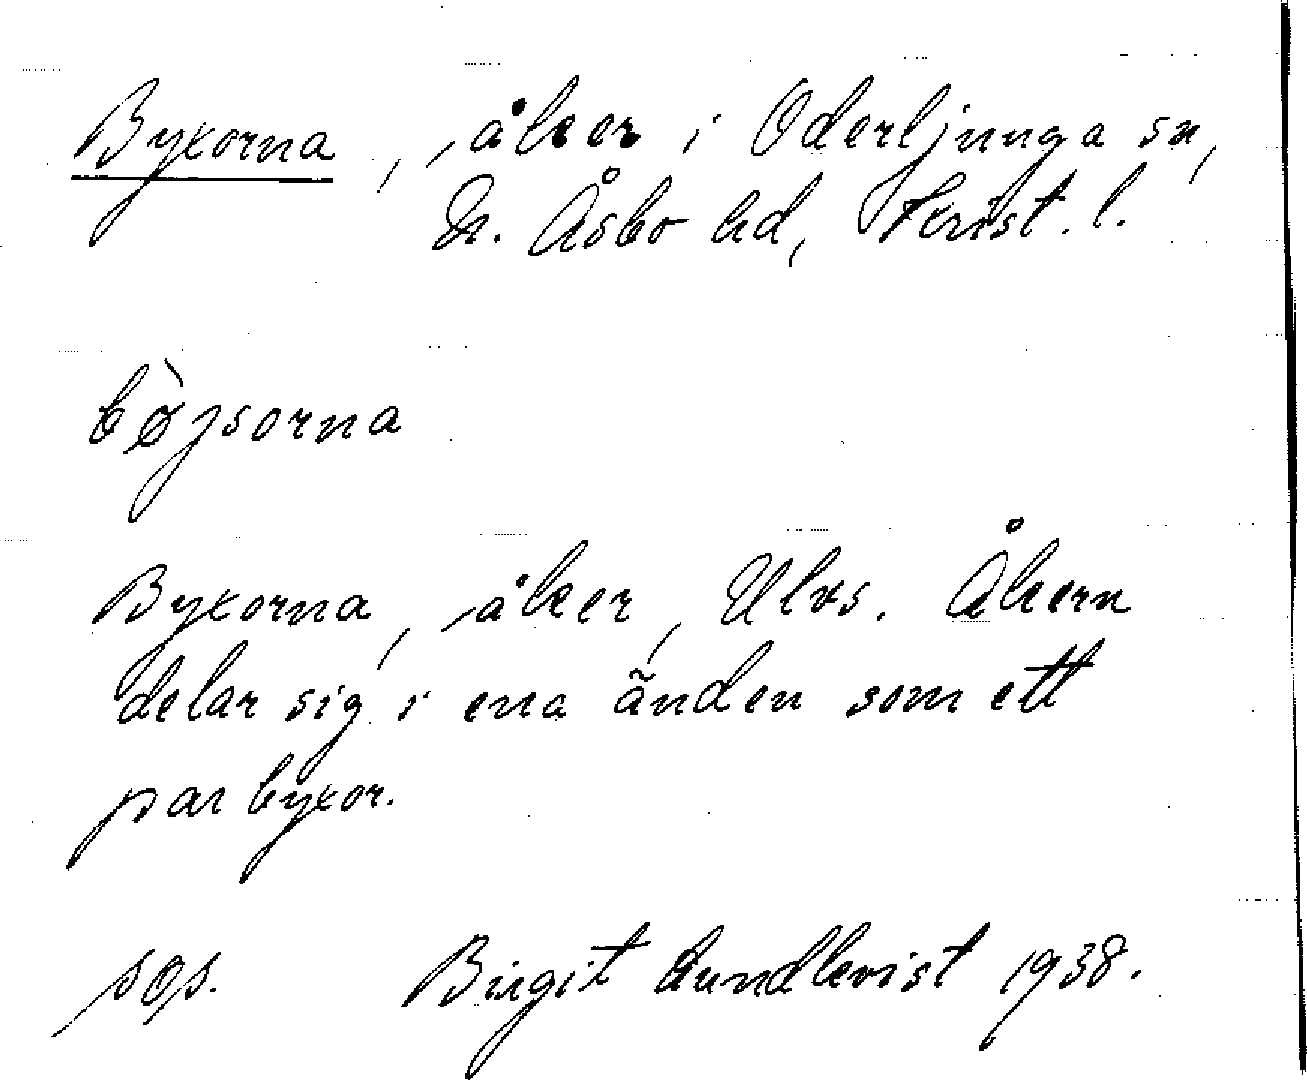 Byxorna, åker i Oderljunga sn,
N. Åsbo hd, Krist. l.
bø̀jsorna
Byxorna, åker, Ulvs. Åkern
delar sig i ena änden som ett
par byxor.
sgs. Birgit Lundkvist 1938.